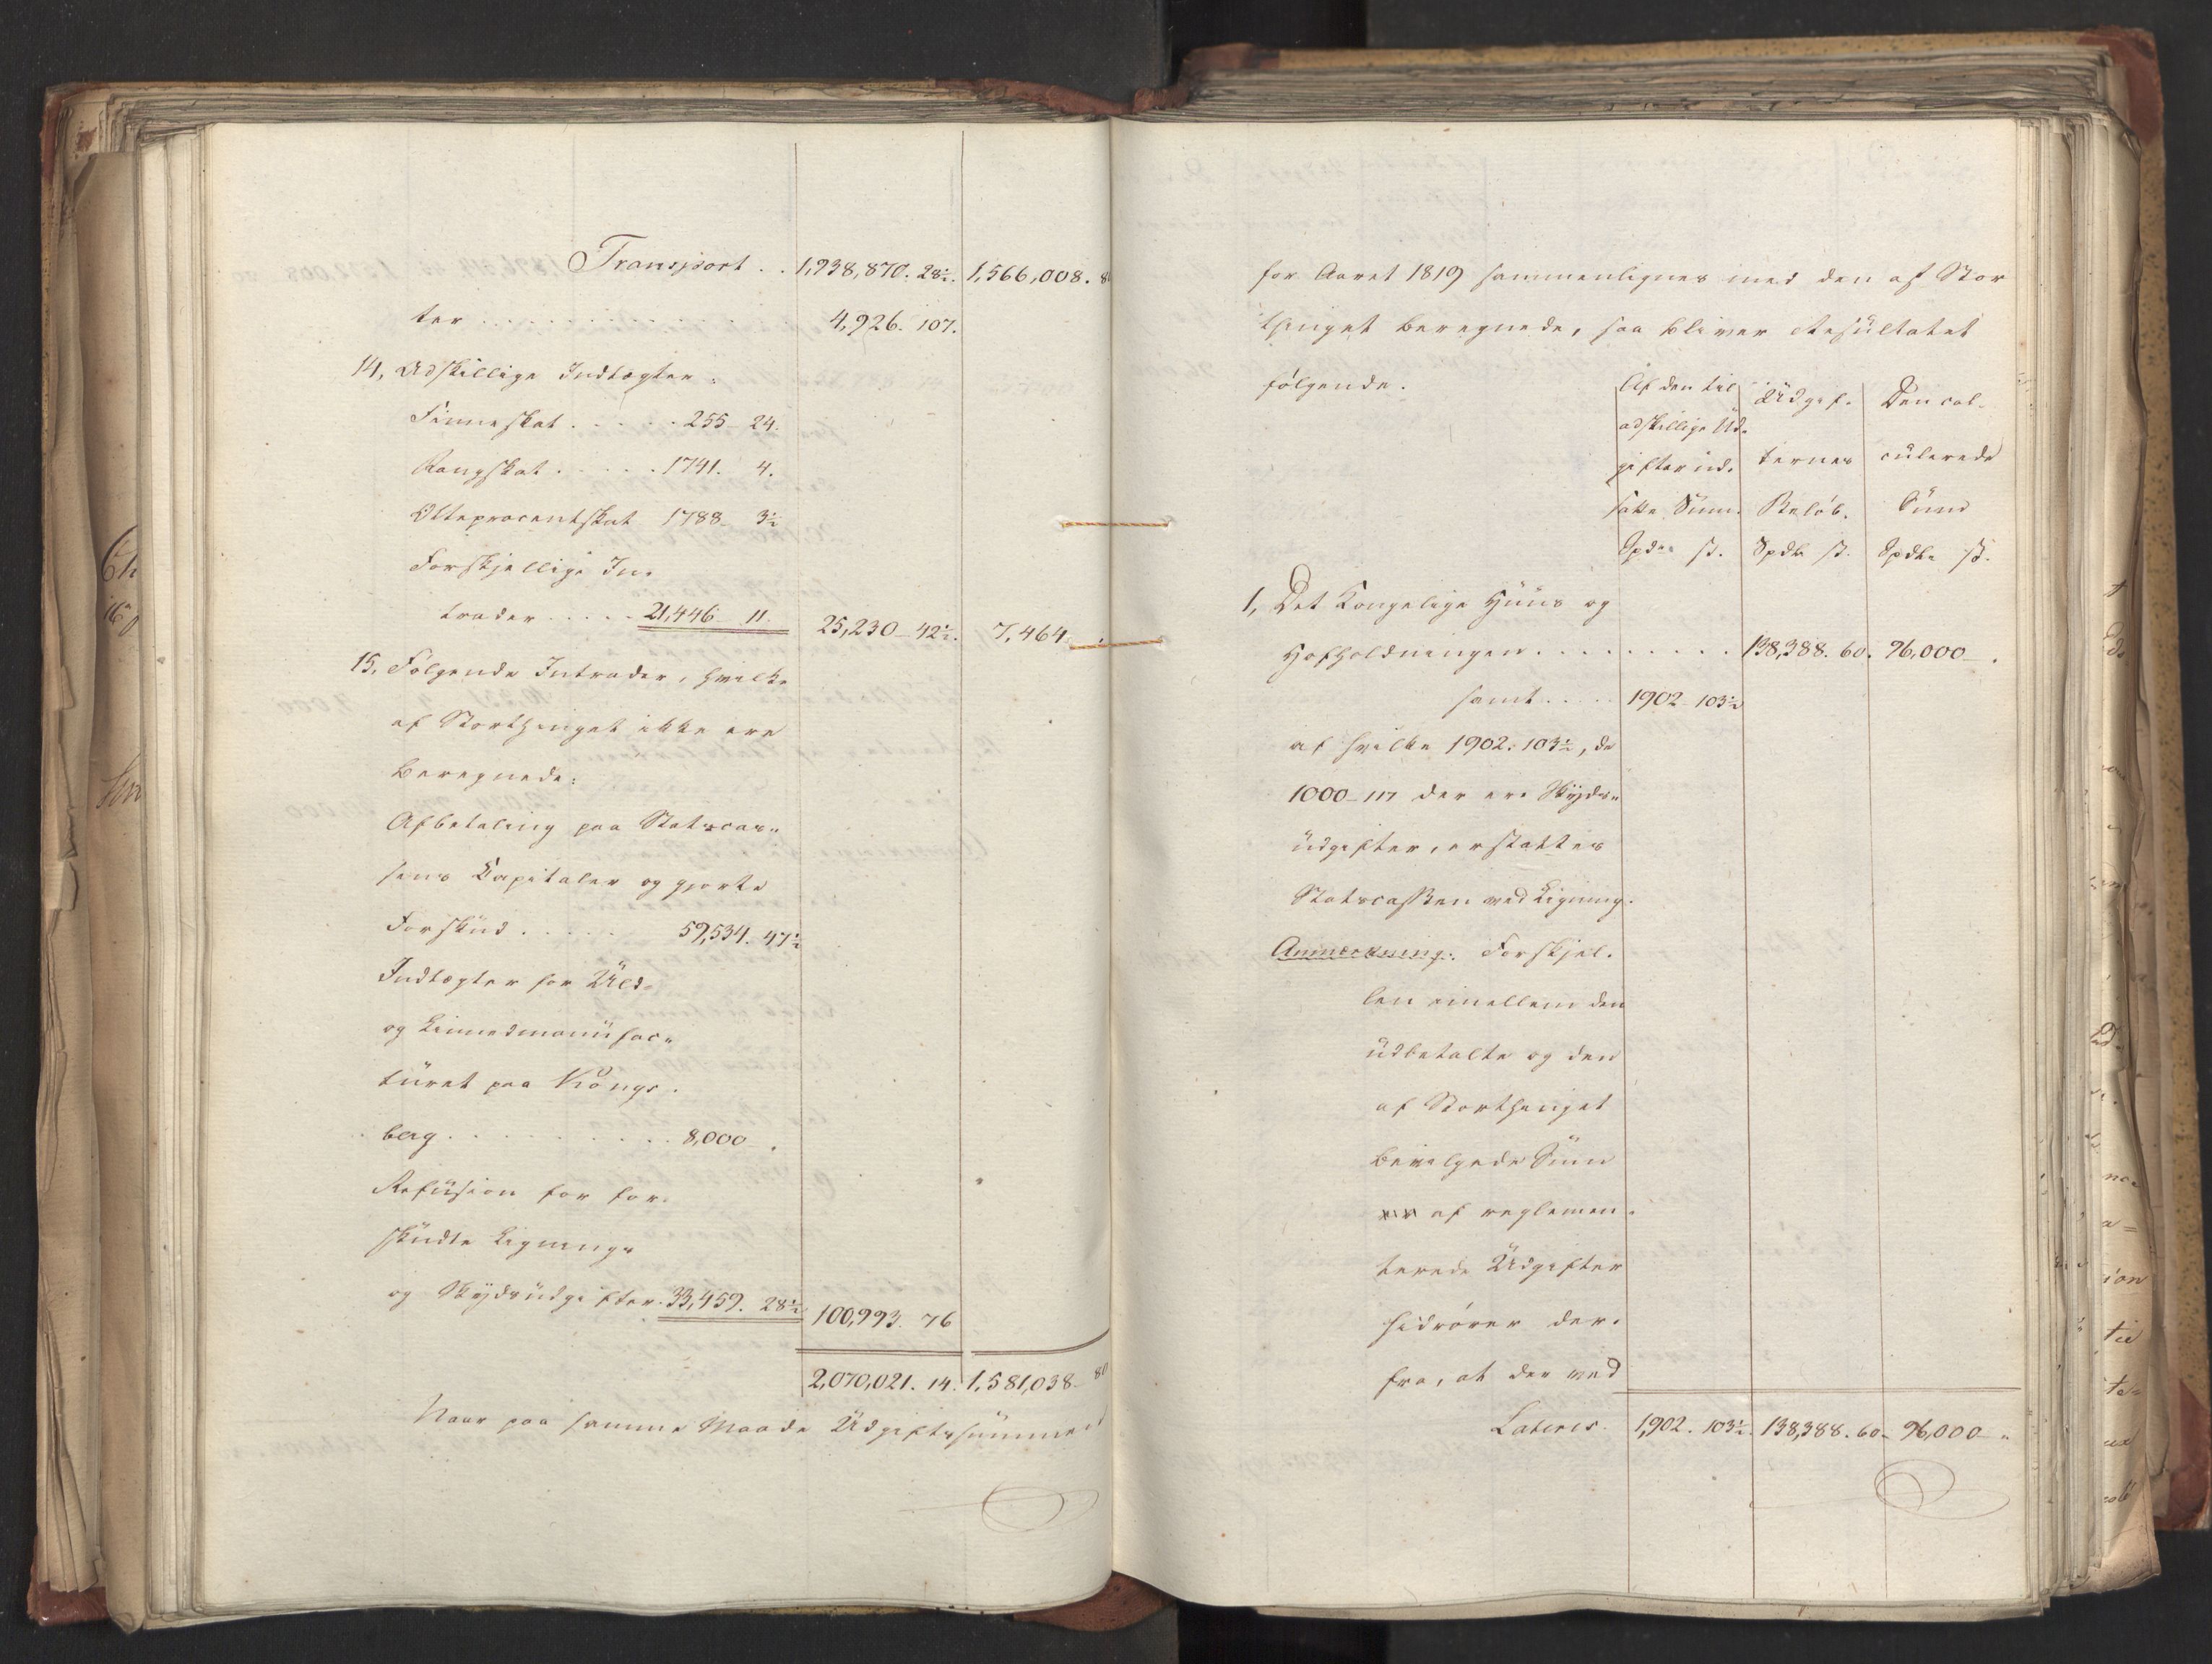 Transport . . 1,938,870. 28½. 1,566,008. 80
ter . . . . . . . . . . . . 4,926. 107.
14, Adskillige Indtægter:
Finneskat . . . . . 255 - 24.
Rangskat . . . . . 1741. 4.
Otteprocentskat 1788 - 3½
Forskjellige In-
trader . . . . . 21,446 11. 25,230 - 42½. 7,464. .
15, Følgende Intrader, hvilke
af Storthinget ikke ere
beregnede:
Afbetaling paa Statscas-
sens Kapitaler og gjorte
Forskud . . . . . 59,534. 47½
Indtægter for Uld-
og Linnedmanufac-
turet paa Kongs-
berg . . . . . . . . . . 8,000 .
Refusion for for-
skudte Lignings
og Skydsudgifter. 33,459. 28½ 100,993. 76
2,070,021. 14. 1,581,038 - 80
Naar paa samme Maade Udgiftssummen
for Aaret 1819 sammenlignes med den af Stor
thinget beregnede, saa bliver Resultatet
følgende.
Af den til adskillige Ud- gifter ud- satte Sum. Spdr ß.
Udgif- ternes Beløb. Spdlr ß.
Den cal- culerede Sum Spdlr ß.
1, Det Kongelige Huus og
Hofholdningen . . . . . . . . . 138,388. 60. 96,000 - .
samt . . . . . 1902 - 103½
af hvilke 1902. 103½, de
1000 - 117 der ere Skyds-
udgifter, erstattes
Statscassen ved Ligning.
Anmerkning: Forskjel-
len imellem den
udbetalte og den
af Storthinget
bevilgede Sum
af reglemen-
terede Udgifter
hidrører der-
fra, at der ved
Lateris. 1,902. 103½. 138,388. 60 - 96,000 - "